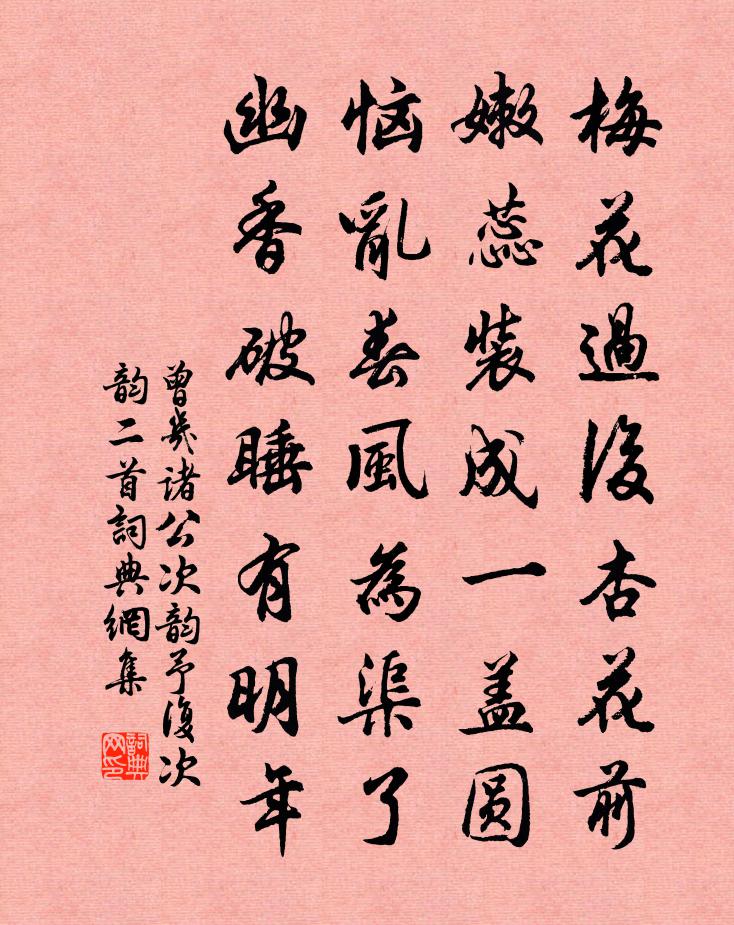 梅花過後杏花前
嫩蕊裝成一盖圆
恼亂春風為渠了
幽香破睡有明年
曾幾诸公次韵予復次
韵二首詞典網集
詞典
网印